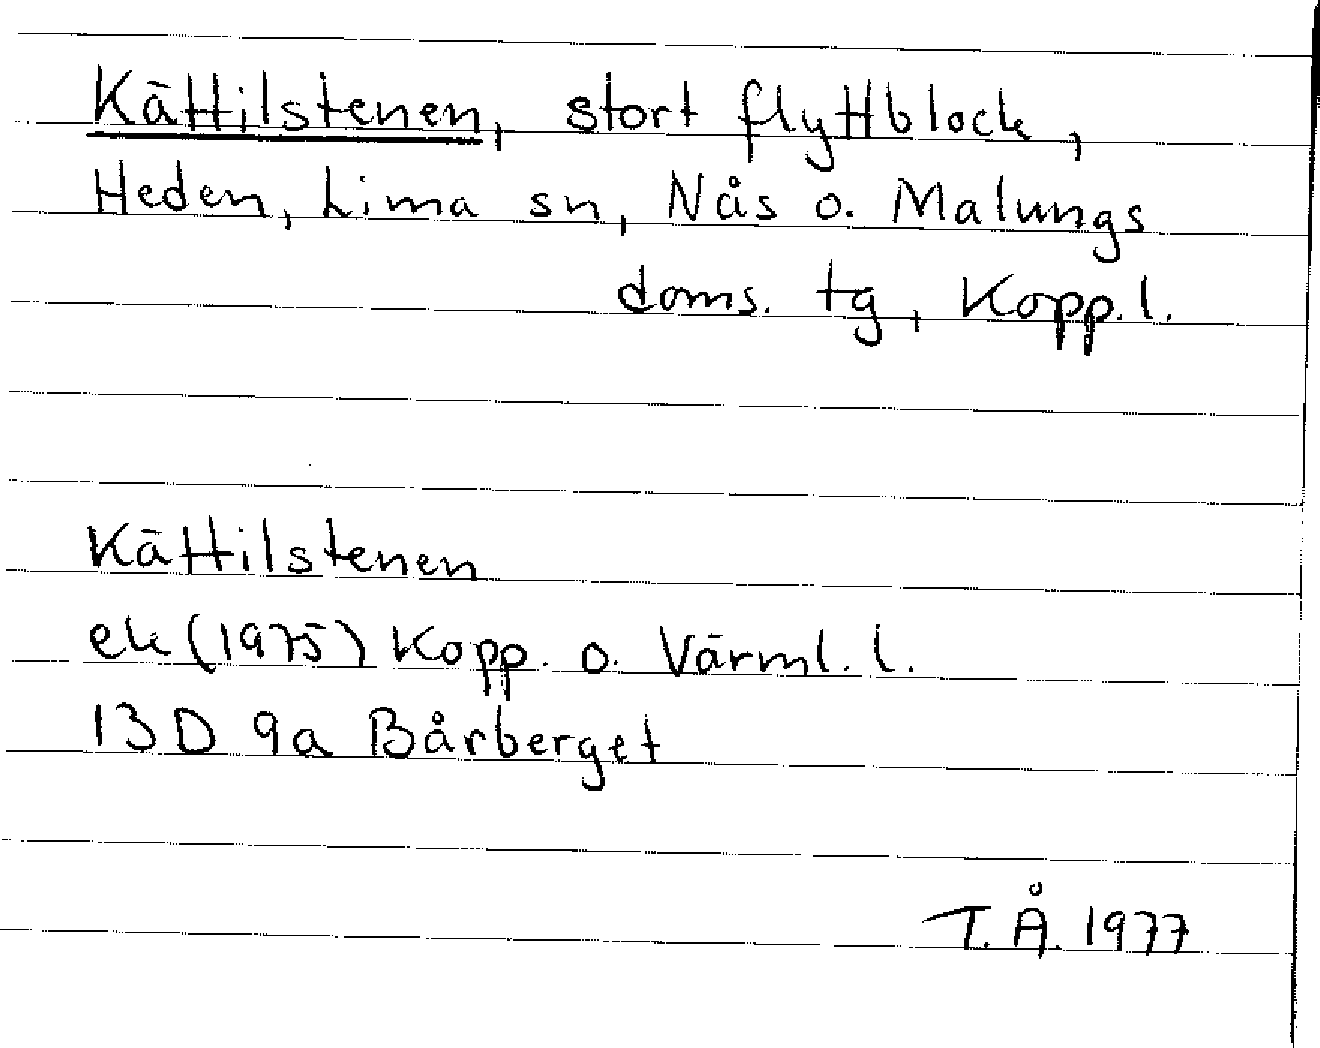 Kättilstenen, stort flyttblock,
Heden, Lima sn, Nås o. Malungs
doms. tg, Kopp. l.
Kättilstenen
ek (1975) Kopp. o. Värml. l.
13D 9a Bårberget
T.Å. 1977